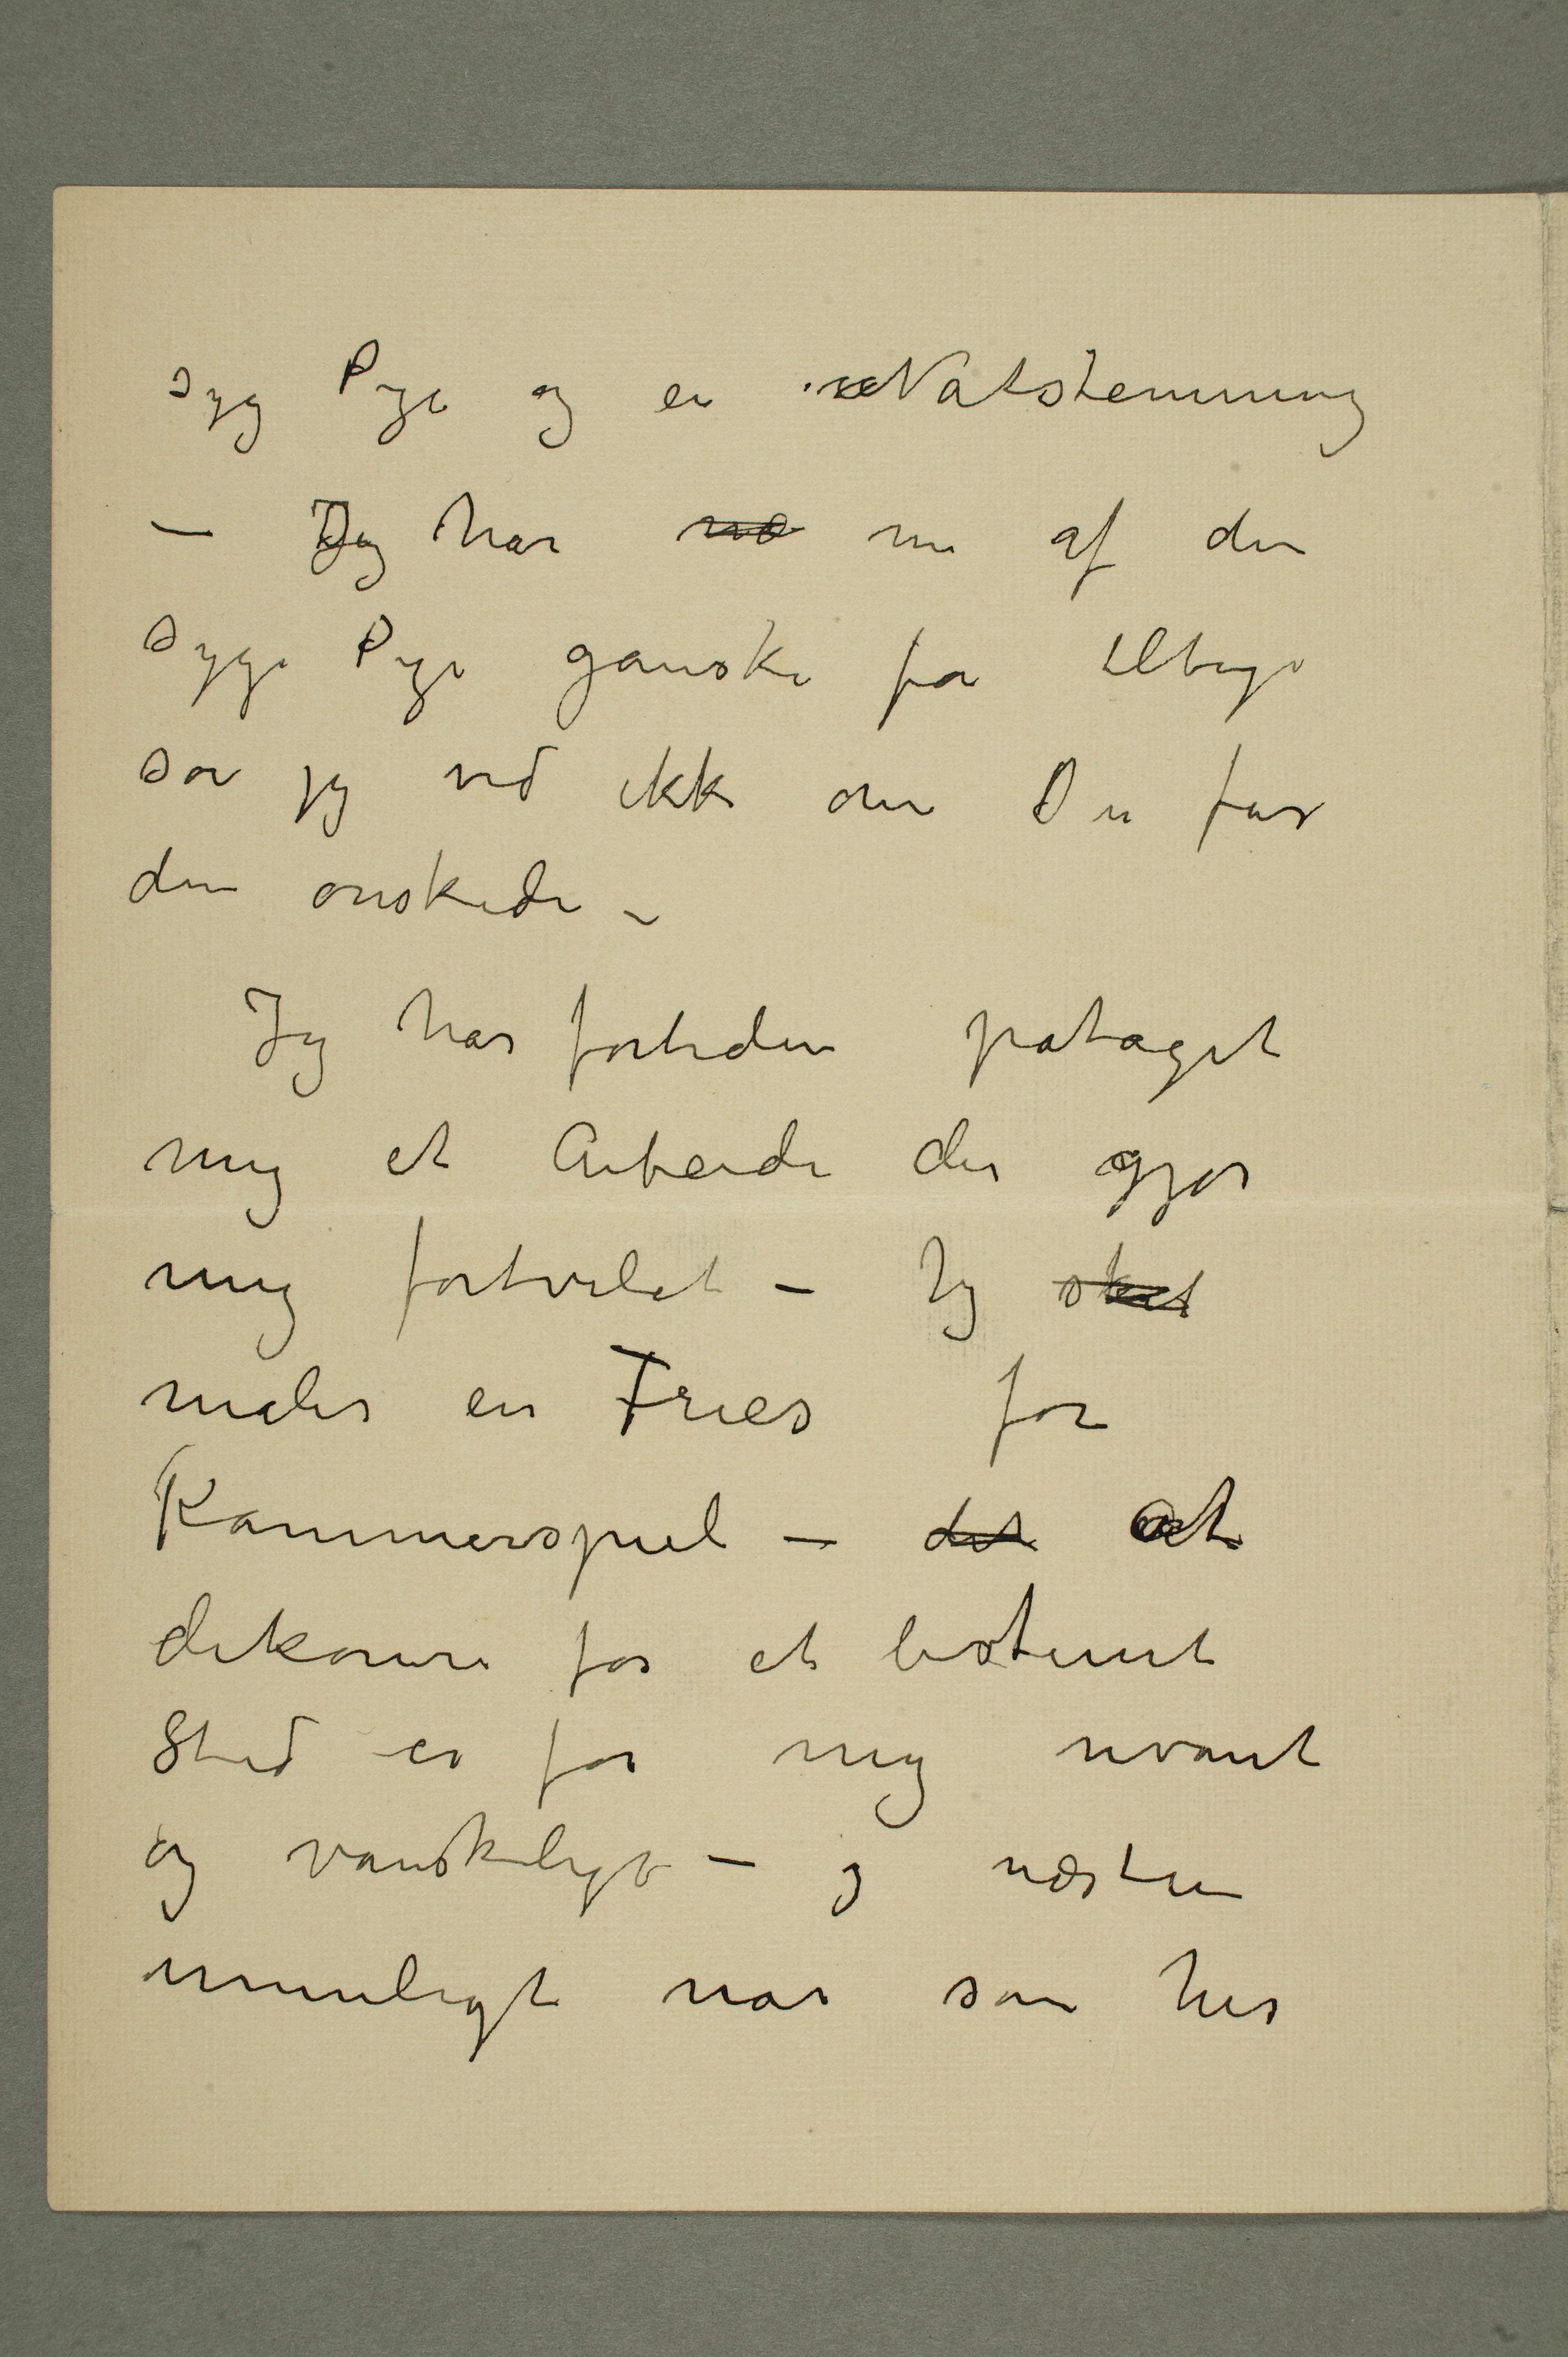 syg Pige og en Natstemning
– Jeg har nu af den
syge Pige ganske få tilbage
så jeg ved ikke om Du får
den ønskede –
Jeg har fortiden påtaget
mig et Arbeide der gjør
mig fortvilet – Jeg skal
maler en Fries for
Kammerspiel – det at
dekorere for et bestemt
Sted er for mig uvant
og vanskeligt – og næsten
umuligt når som her